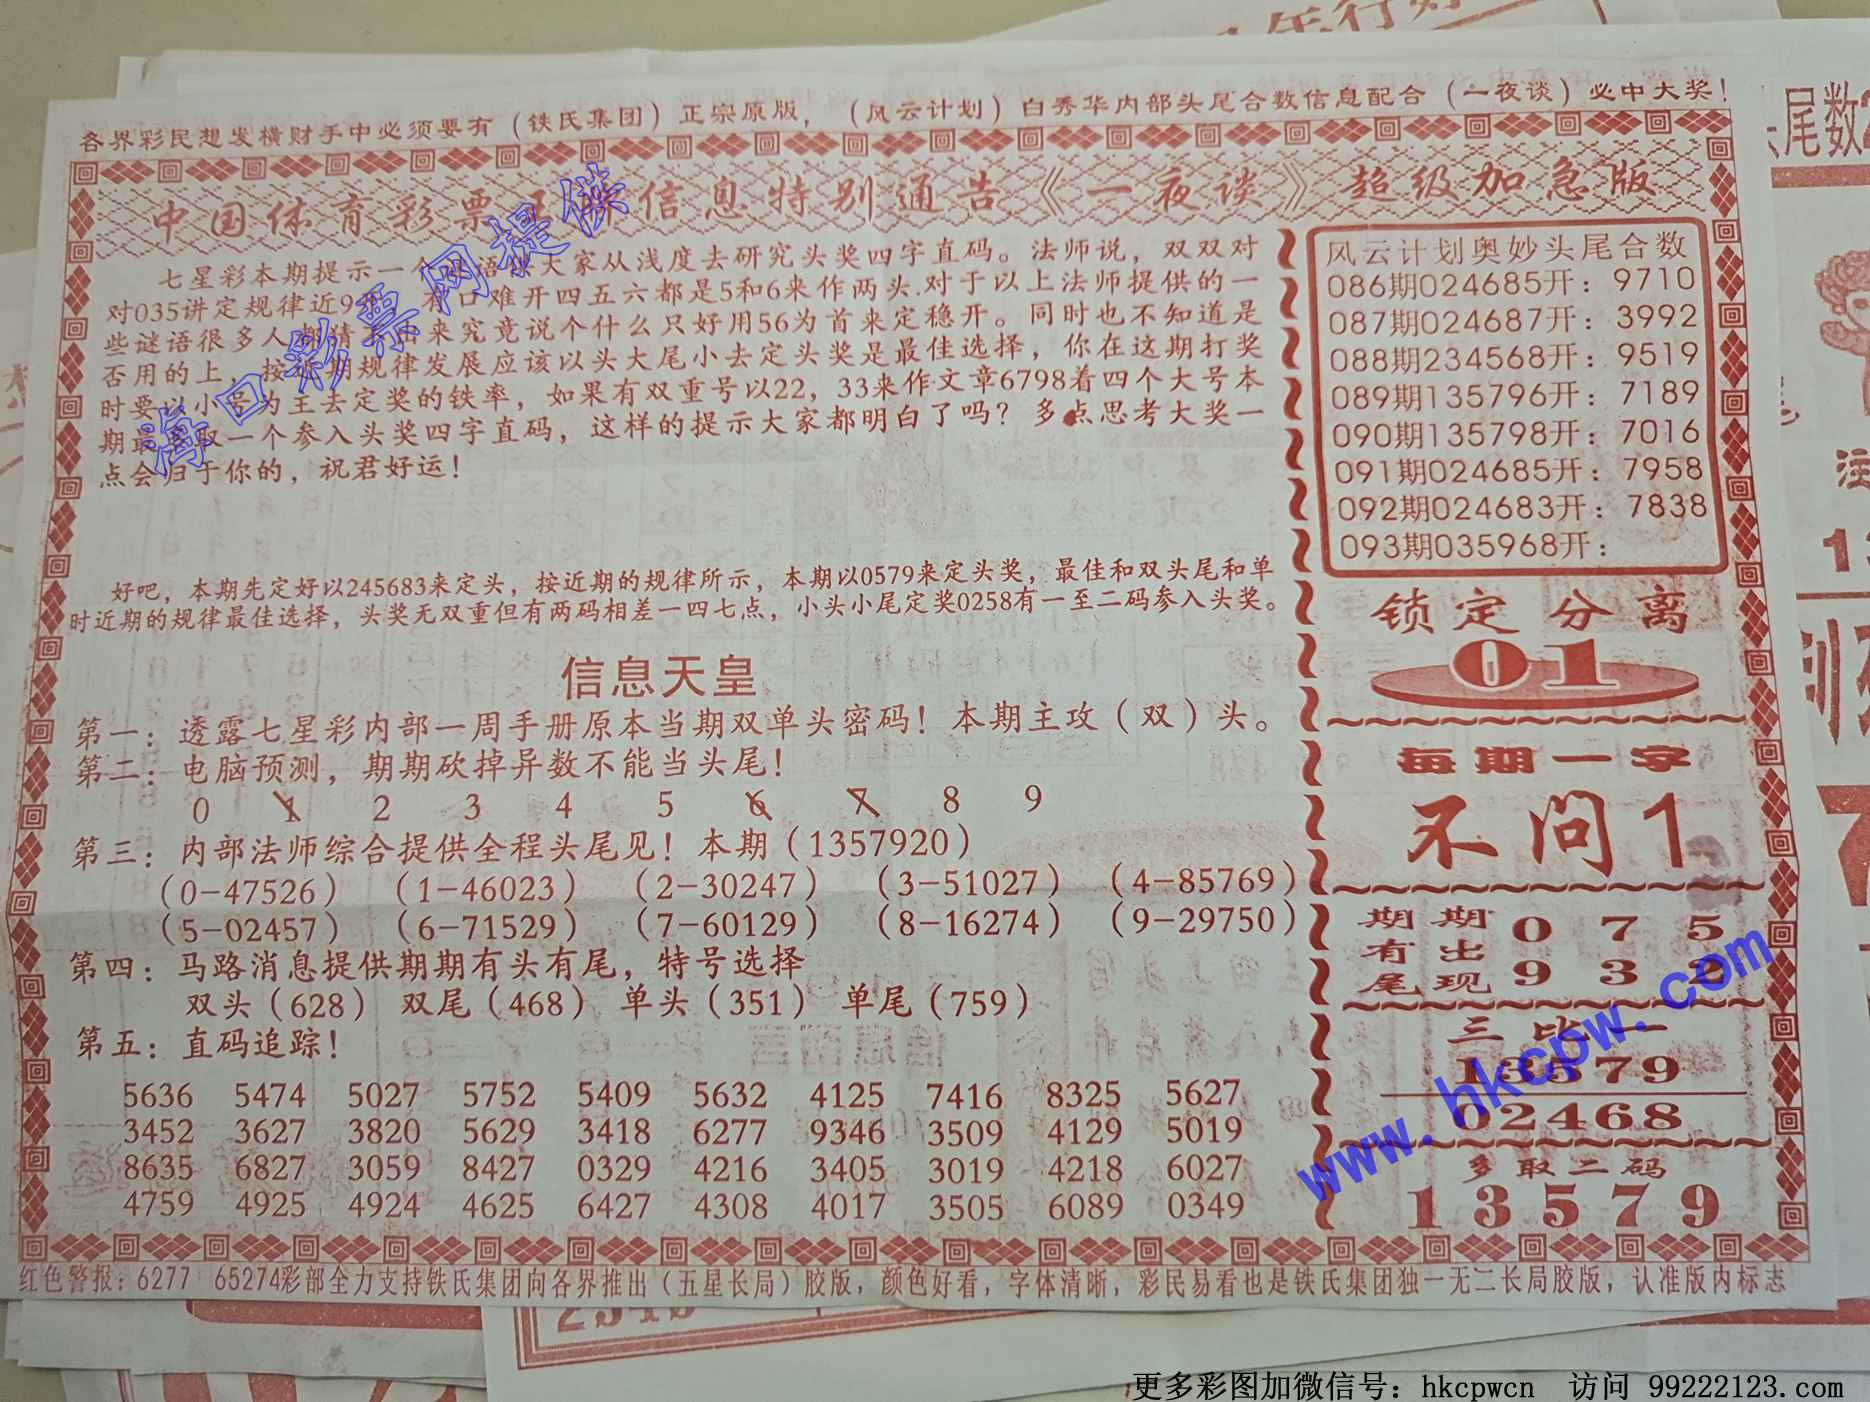 各界彩民想发横财手中必须要有（铁氏集团）正宗原版，（风云计划）白秀华内部头尾合数信息配合（一夜谈）必中大奖！
中国体育彩票 信息特别通告《一夜谈》超级加急版
七星彩本期提示一 语 大家从浅度去研究头奖四字直码。法师说，双双对
对035讲定规律近9 有口难开四五六都是5和6来作两头.对于以上法师提供的一
些谜语很多人 猜 出来究竟说个什么只好用56为首来定稳开。同时也不知道是
否用的上，按 期规律发展应该以头大尾小去定头奖是最佳选择，你在这期打奖
时要以小号为王去定奖的铁率，如果有双重号以22，33来作文章6798着四个大号本
期最 取一个参入头奖四字直码，这样的提示大家都明白了吗？多点思考大奖一
点会归于你的，祝君好运！
好吧，本期先定好以245683来定头，按近期的规律所示，本期以0579来定头奖，最佳和双头尾和单
时近期的规律最佳选择，头奖无双重但有两码相差一四七点，小头小尾定奖0258有一至二码参入头奖。
信息天皇
第一：透露七星彩内部一周手册原本当期双单头密码！本期主攻（双）头。
第二：电脑预测，期期砍掉异数不能当头尾！
0 1 2 3 4 5 6 7 8 9
第三：内部法师综合提供全程头尾见！本期（1357920）
（0-47526）（1-46023）（2-30247）（3-51027）（4-85769）
（5-02457）（6-71529）（7-60129）（8-16274）（9-29750）
第四：马路消息提供期期有头有尾，特号选择
双头（628） 双尾（468） 单头（351） 单尾（759）
第五：直码追踪！
5636 5474 5027 5752 5409 5632 4125 7416 8325 5627
3452 3627 3820 5629 3418 6277 9346 3509 4129 5019
8635 6827 3059 8427 0329 4216 3405 3019 4218 6027
4759 4925 4924 4625 6427 4308 4017 3505 6089 0349
风云计划奥妙头尾合数
086期024685开：9710
087期024687开：3992
088期234568开：9519
089期135796开：7189
090期135798开：7016
091期024685开：7958
092期024683开：7838
093期035968开：
锁定分离
01
每期一字
不问1
期期 0 7 5
有出
尾现 9 3
三比一
13579
02468
多取二码
13579
红色警报：6277 65274彩部全力支持铁氏集团向各界推出（五星长局）胶版，颜色好看，字体清晰，彩民易看也是铁氏集团独一无二长局胶版，认准版内标志
海口彩票网提供
www.hkcpw.com
头尾数
更多彩图加微信号：hkcpwcn 访问 99222123.com